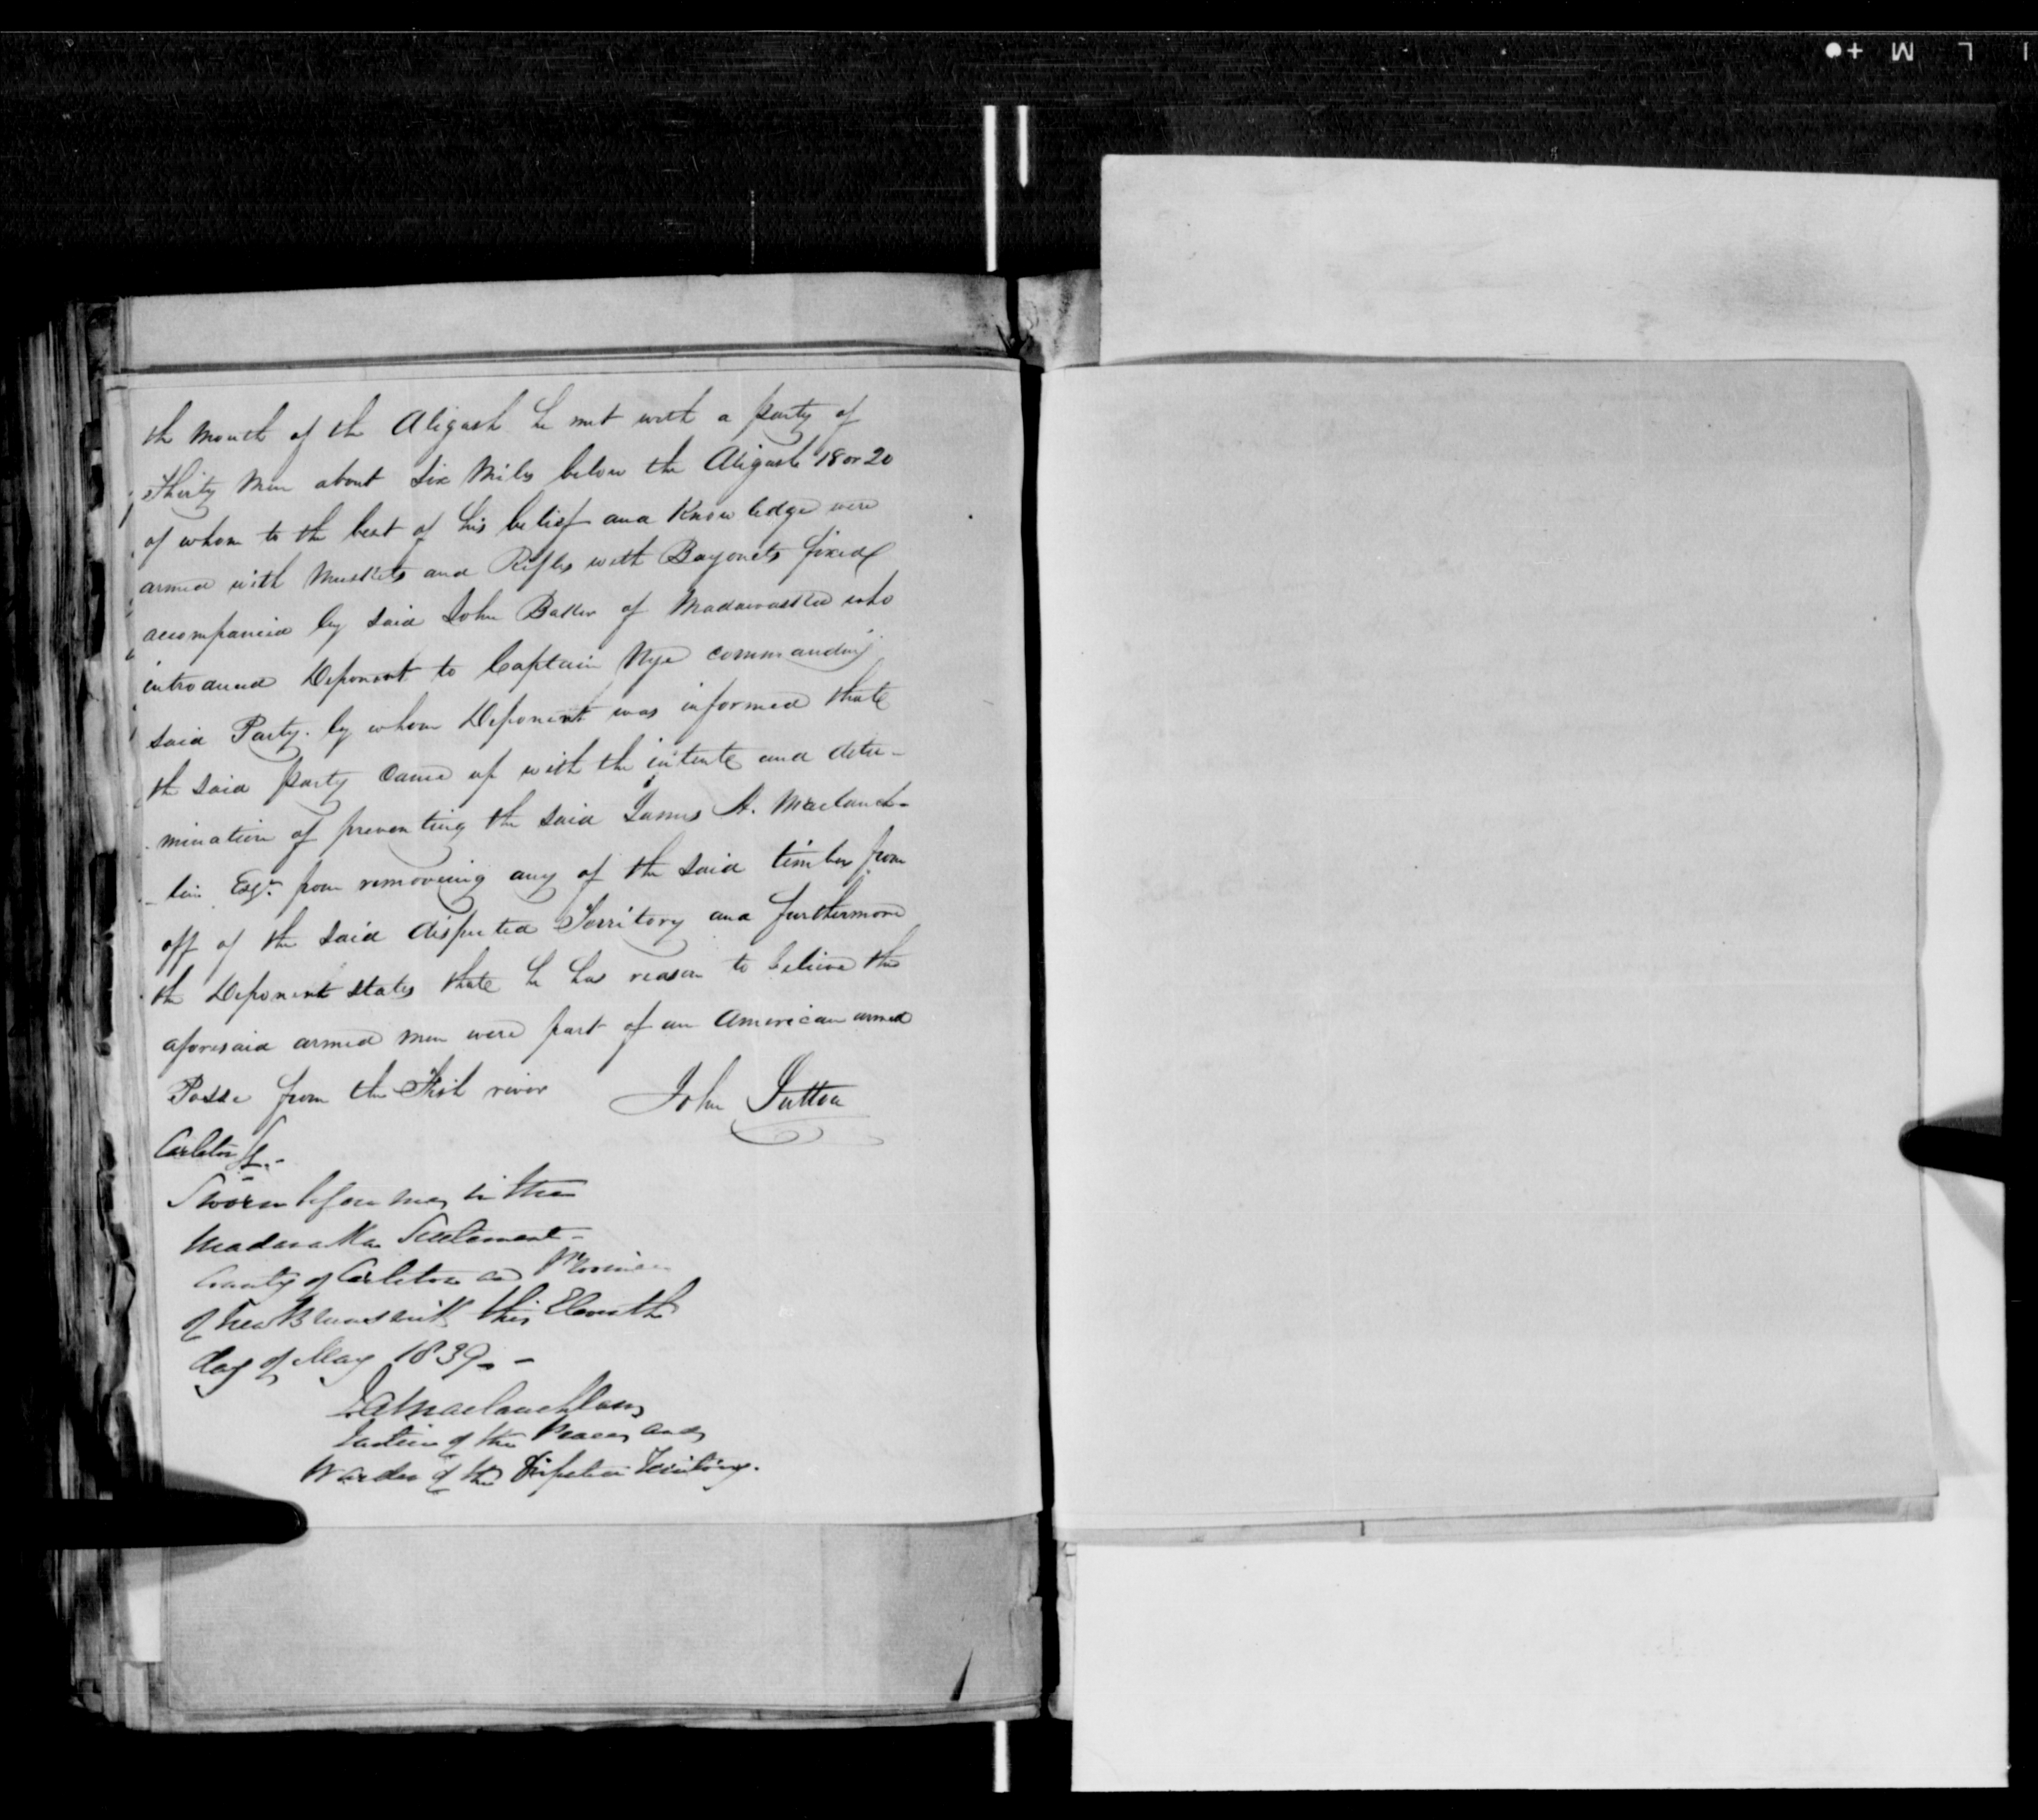 the mouth of the Aligash he met with a party of
thirty Men about Six Miles below the Aligash 18 or 20
of whom to the best of his belief and Knowledge were
armed with Muskets and Rifles with Bayonets fixed
accompanied by said John Baker of Madawaska who
introduced Deponent to Captain Nye commanding
said Party. by whom Deponent was informed that
the said party Came up with the intent and deter-
mination of preventing the said James A. Maclauch-
-lin Esqr. from removeing any of the said timber from
off of the said disputed Territory and furthermore
the Deponent states that he has reason to believe the
aforesaid armed men were part of an American armed
Posse from the Fish river John Sutton
Carleton Ss.-
Sworn before me, in the
Madawaska Settlement-
County of Carleton and Province
of New Brunswick this Eleventh
day of May 1839.-
J. A. Maclauchlan,
Justice of the Peace, and
Warden of the Disputed Territory.